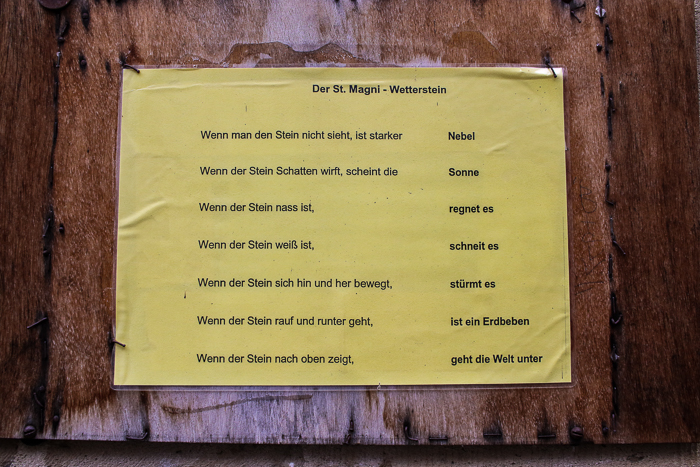 Der St. Magni - Wetterstein
Wenn man den Stein nicht sieht, ist starker Nebel
Wenn der Stein Schatten wirft, scheint die Sonne
Wenn der Stein nass ist, regnet es
Wenn der Stein weiß ist, schneit es
Wenn der Stein sich hin und her bewegt, stürmt es
Wenn der Stein rauf und runter geht, ist ein Erdbeben
Wenn der Stein nach oben zeigt, geht die Welt unter